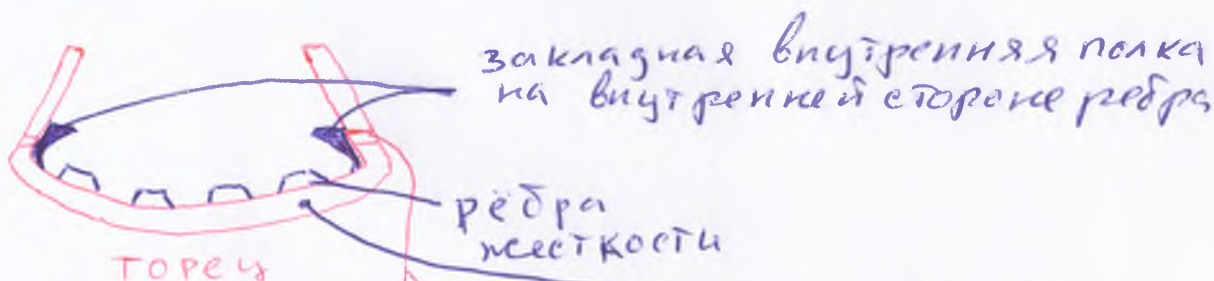 закладная внутренняя полка
на внутренней стороне ребра
рёбра
жесткости
торец